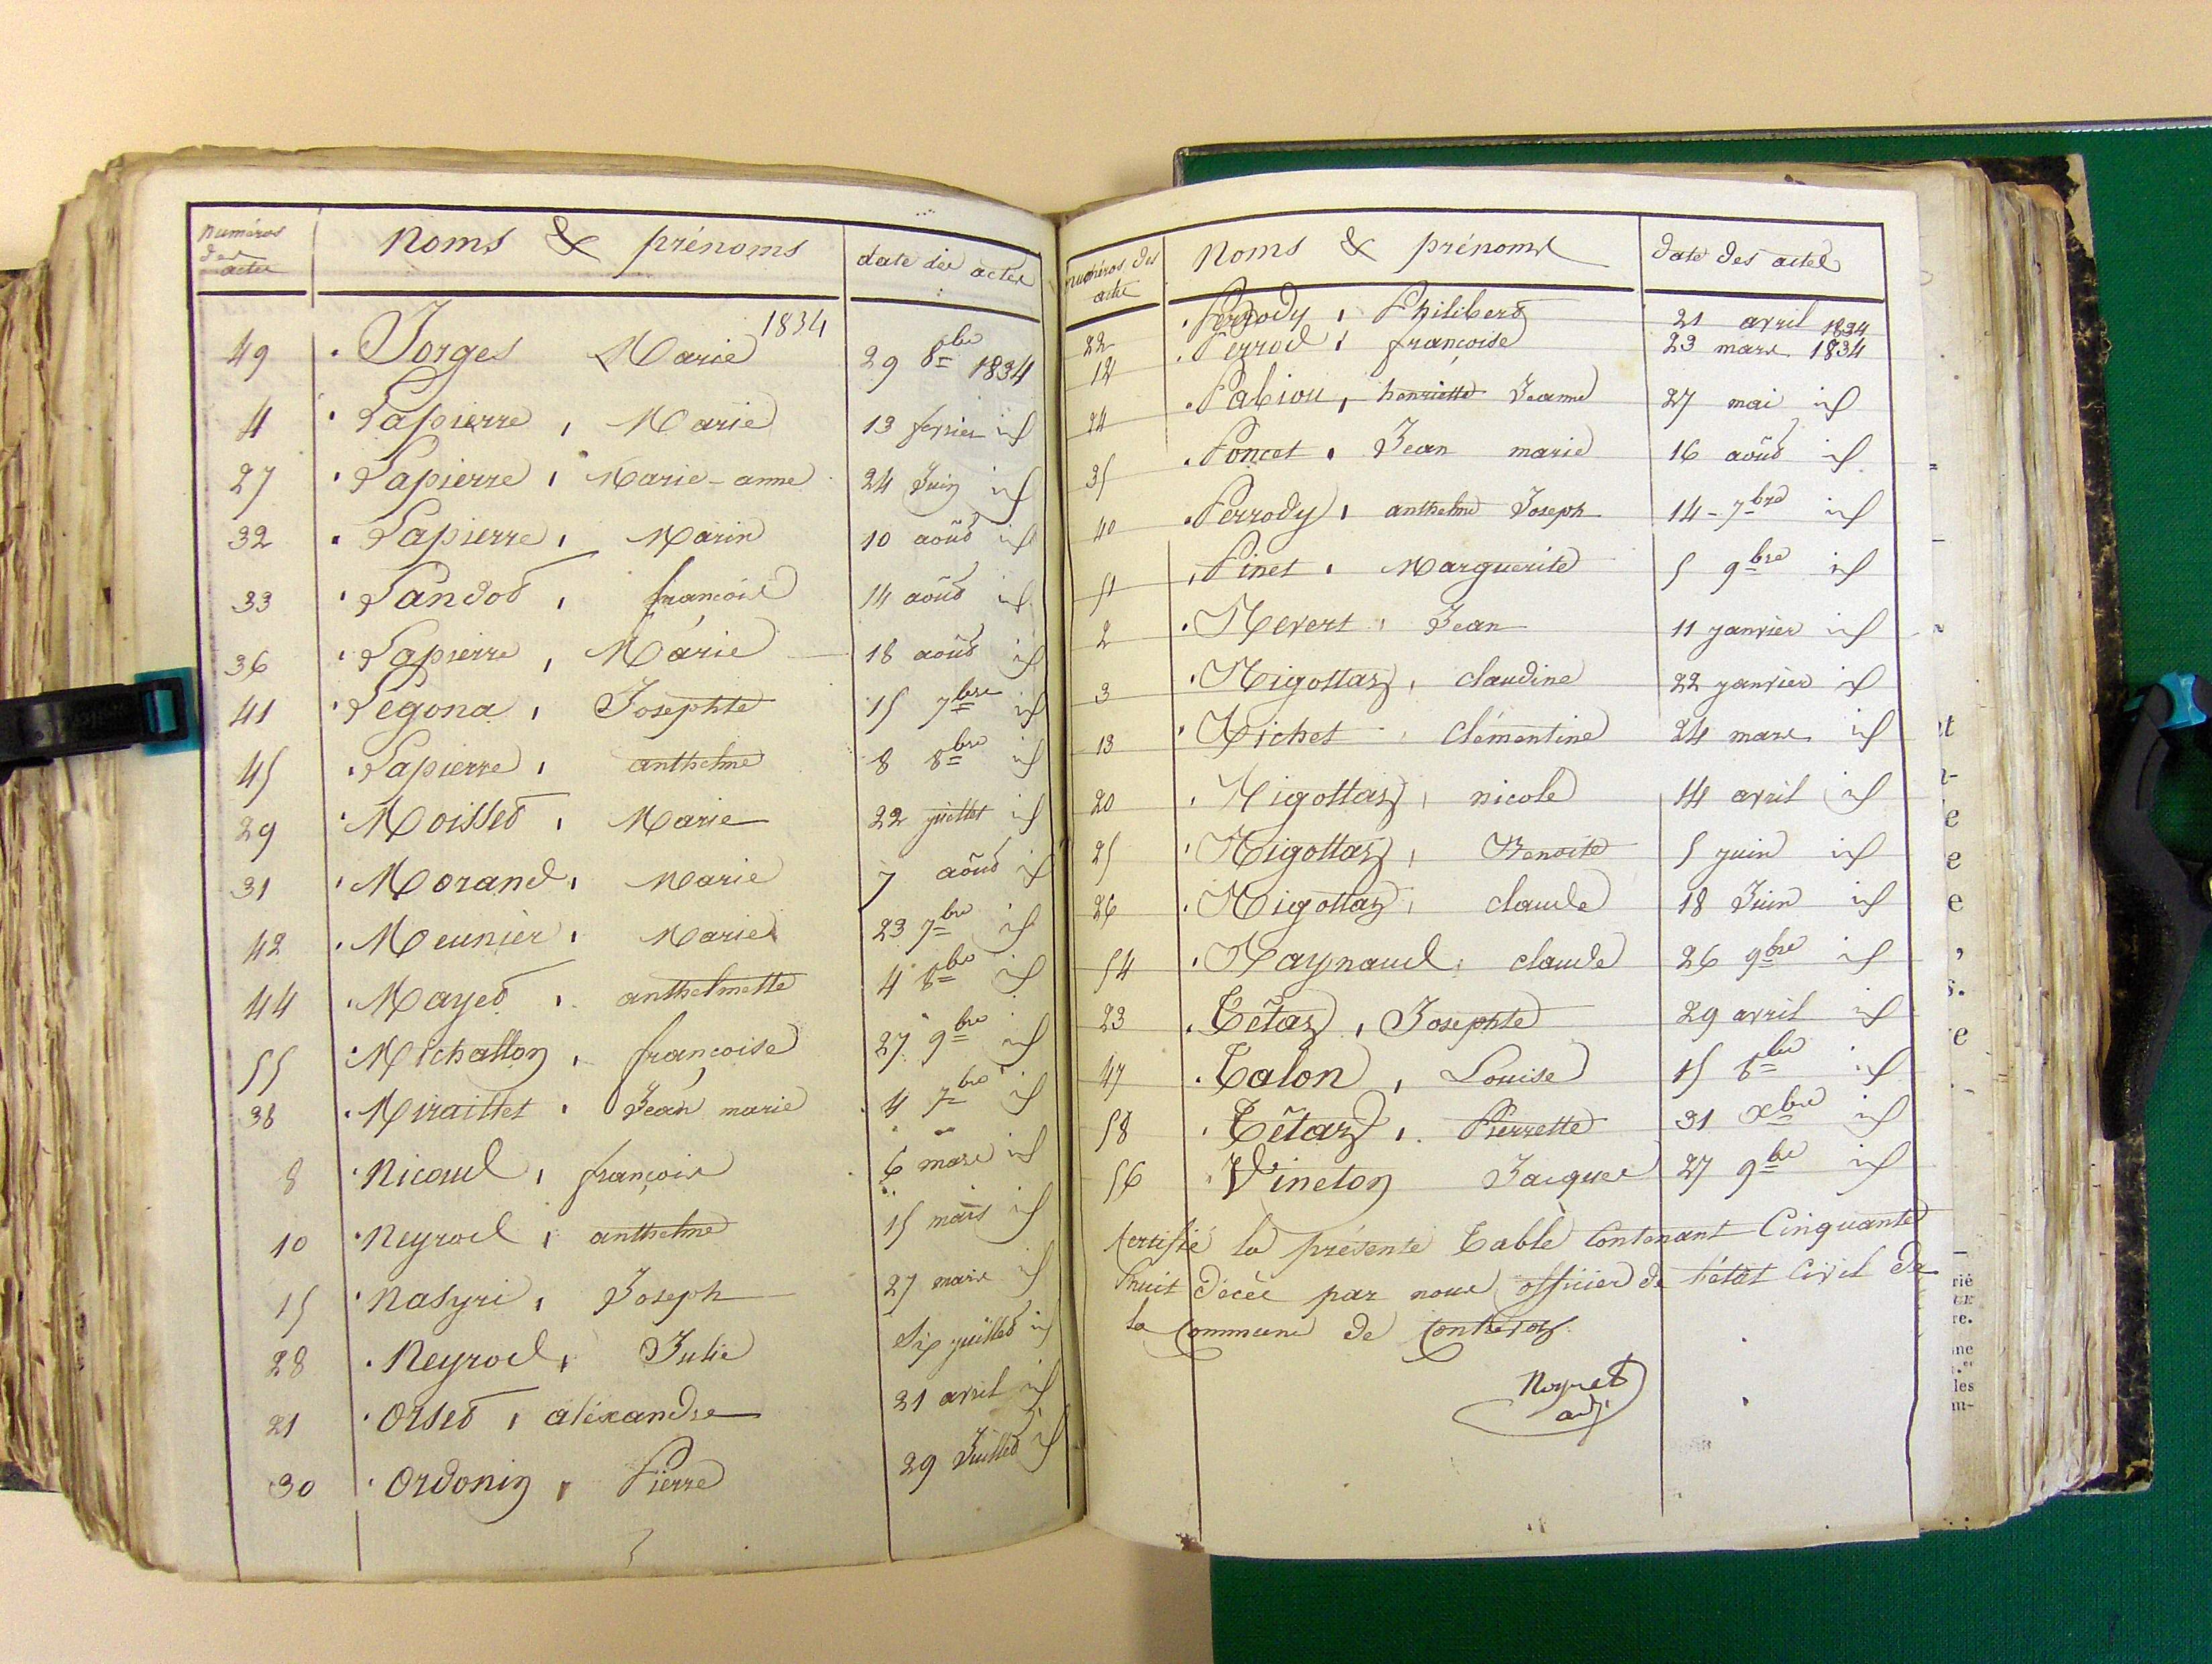 numéros des actes noms & prénoms date des actes
1834
49 Jorges Marie 29 8bre 1834
4 Lapierre, Marie 13 fevrier id
27 Lapierre, Marie-anne 24 Juin id
32 Lapierre, Marin 10 août id
33 Landot, françois 14 août id
36 Lapierre, Marie 18 août id
41 Legona, Josephte 15 7bre id
45 Lapierre, anthelme 8 8bre id
29 Moisset, Marie 22 juillet id
31 Morand, Marie 7 août id
42 Meunier, Marie 23 7bre id
44 Mayet, anthelmette 4 8bre id
55 Michallon, françoise 27 9bre id
38 Miraillet, Jean marie 4 7bre id
8 Nicoud, françois 6 mars id
10 Neyroud, anthelme 15 mars id
15 Joseph 27 mars id
28 Neyrod, Julie Six juillet id
21 Orset, aléxandre 21 avril id
30 Ordonin, Pierre 29 Juillet id
numéros des actes noms & prénoms date des actes
22 Perrody, Philibert 21 avril 1834
12 Perrod, françoise 23 mars 1834
24 Pabiou, henriette Jeanne 27 mai id
35 Poncet, Jean marie 16 août id
40 Perrody, anthelme Joseph 14-7bre id
51 Pinet, Marguerite 5 9bre id
2 Revert, Jean 11 janvier id
3 Rigottaz, claudine 22 janvier id
13 Richet, clémentine 24 mars id
20 Rigottaz, nicole 14 avril id
25 Rigottaz, Benoite 5 juin id
26 Rigottaz, claude 18 Juin id
54 Raynaud, claude 26 9bre id
23 Têtaz, Josephte 29 avril id
47 Talon, Louise 15 8bre id
58 Têtaz, Pierrette 31 Xbre id
56 Vineton Jacques 27 9bre id
Certifié la présente Table Contenant Cinquante
huit décès par nous officier de l'état Civil de
la Commune de Contrevoz
adj.